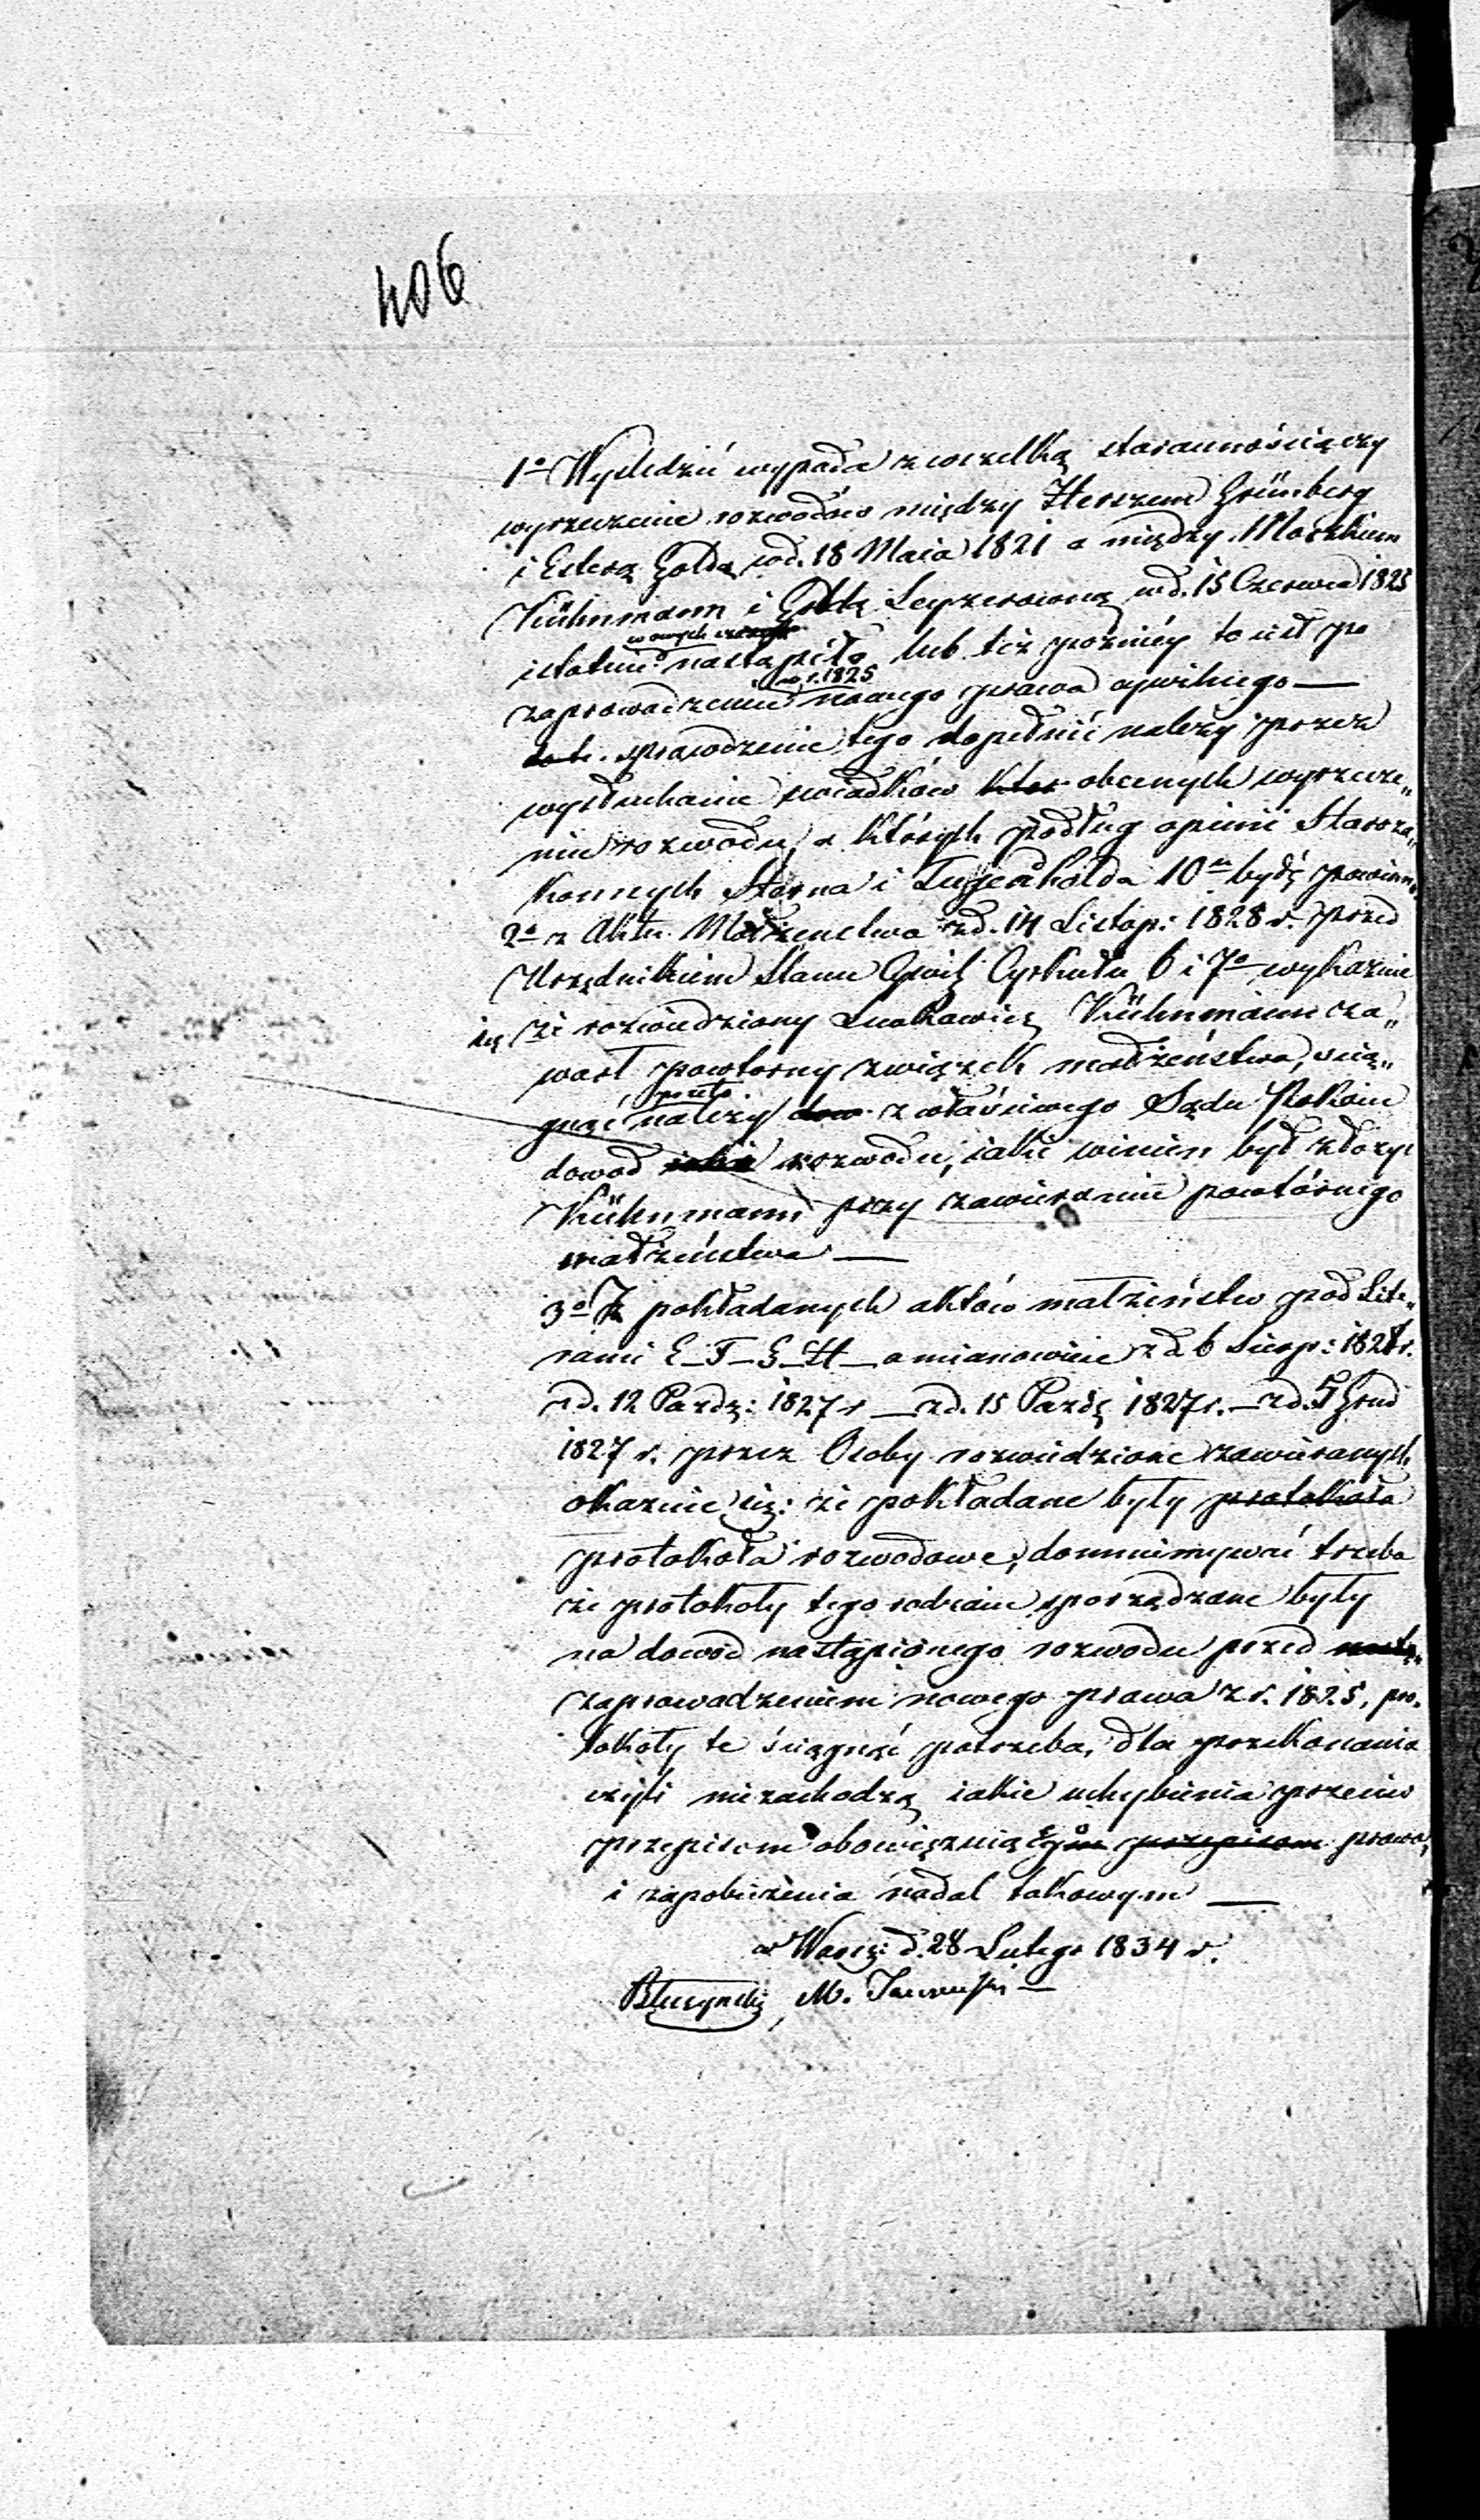 406
1o Wyśledzić wypada z wszelką starannością czy
wyrzeczenie rozwodów między Herszem Grünberg
i Esterą Goldą w d. 18 Maia 1821 a między Moszkiem
Kühnmann i Goldą Leyzerowiczą w d. 15 Czerwca 1823
w owych
istotnie nastąpiło lub też pozniéy to iest po
w r. 1825
zaprowadzeniu nowego prawa cywilnego —
sprawdzenie tego dopełnić należy przez
wysłuchanie swiadków obecnych wyrzecze„
niu rozwodu, a których podług opinii Staroza„
konnych Sterna i Tugendholda 10u bydź powinno
2o z Aktu Małżenstwa z d. 14 Listop: 1828 r. przed
Urzędnikiem Stanu Cywil Cyrkułu 6 i 7o wykazuie
się że rozwiedziony Kühnmann za„
warł powtorny związek małżeństwa, scią„
przeto
gnąć należy z właściwego Sądu Pokoiu
dowod rozwodu, iaki winien był złożyć
Kühnmann przy zawieraniu powtórnego
małżeństwa —
3o Z pokładanych aktów małżeństw pod Lite„
rami E—F—G—H— a mianowicie z d 6 Sierp: 1827 r.
z d. 12 Pazdz: 1827 r — z d. 15 Pazdz 1827 r. — z d. 5 Grud
1827 r. przez Osoby rozwiedzione zawieranych
okazuie się: że pokładane były protokóła
protokóła rozwodowe, domniemywać trzeba
że protokoły tego rodzaiu sporządzane były
na dowód nastąpionego rozwodu przed
zaprowadzeniem nowego prawa z r. 1825, pro„
tokoły te ściągnąć potrzeba, dla przekonania
czyli niezachodzą iakie uchybienia przeciw
przepisom obowięzuiącego przepisom prawa,
i zapobieżenia nadal takowym —
w Warsz: d. 28 Lutego 1834 r.